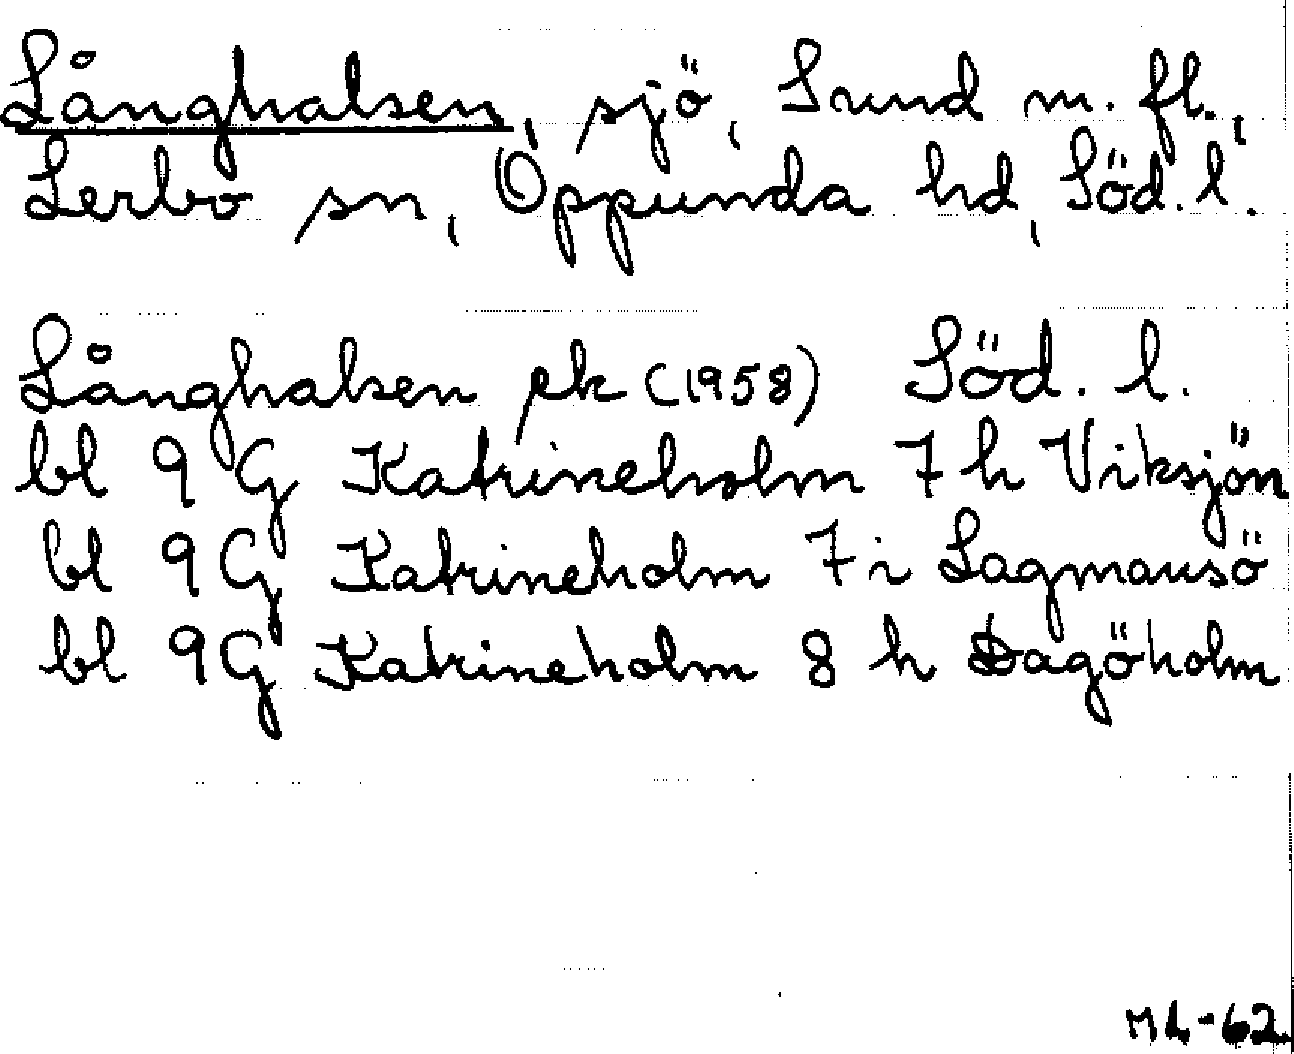 Långhalsen, sjö, Lund m. fl.,
Lerbo sn, Oppunda hd, Söd. l.
Långhalsen ek (1958) Söd. l.
bl 9 G Katrineholm 7 h Viksjön
bl 9 G Katrineholm 7 i Lagmansö
bl 9 G Katrineholm 8 h Dagöholm
ML-62